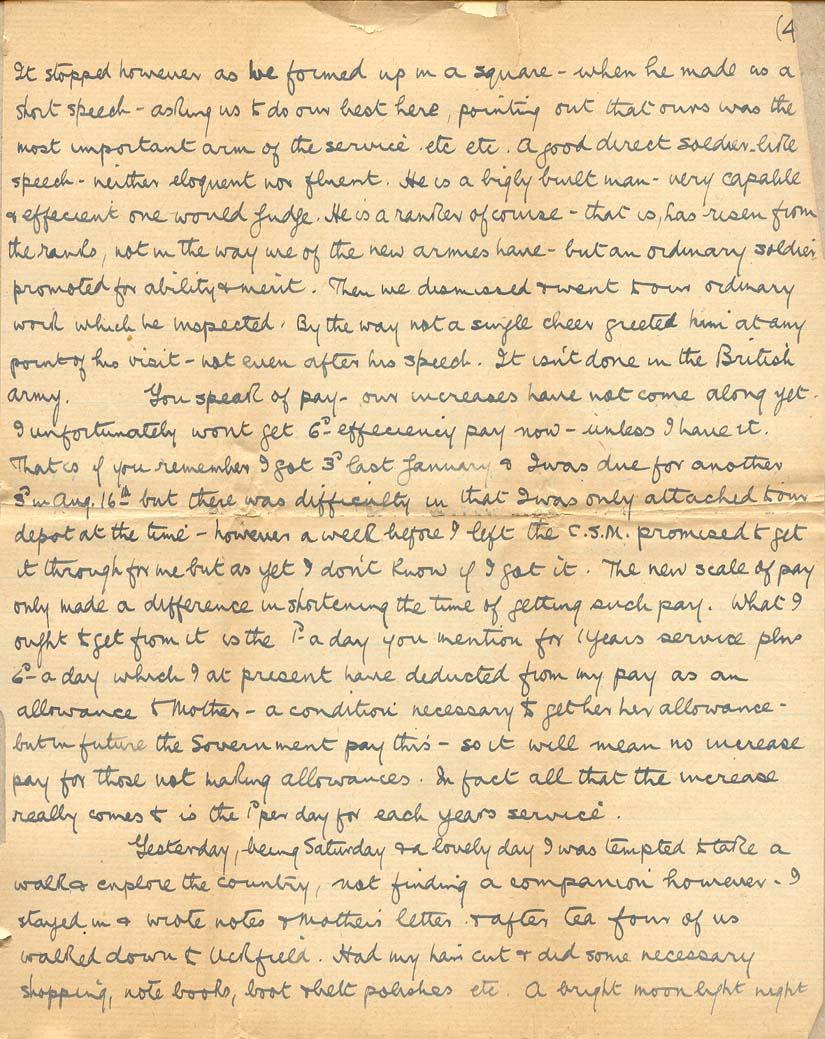 (4
It stopped however as we formed up in a square - when he made us a
short speech - asking us to do our best here, pointing out that ours was the
most important arm of the service etc etc. A good direct soldier-like
speech - neither eloquent nor fluent. He is a bigly built man - very capable
& effecient one would judge. He is a ranker of course - that is, has risen from
the ranks, not in the way we of the new armies have - but an ordinary soldier
promoted for ability & merit. Then we dismissed & went to our ordinary
work which he inspected. By the way not a single cheer greeted him at any
point of his visit - not even after his speech. It isn't done in the British
army. You speak of pay - our increases have not come along yet.
I unfortunately wont get 6ᴰ effeciency pay now - unless I have it.
That is if you remember I got 3ᴰ last January & I was due for another
3ᴰ in Aug. 16th but there was difficulty in that I was only attached to our
depot at the time - however a week before I left the C.S.M. promised to get
it through for me but as yet I don't know if I got it. The new scale of pay
only made a difference in shortening the time of getting such pay. What I
ought to get from it is the 1ᴰ a day you mention for 1 years service plus
6ᴰ a day which I at present have deducted from my pay as an
allowance to Mother - a condition necessary to get her her allowance -
but in future the Government pay this - so it will mean no increase
pay for those not making allowances. In fact all that the increase
really comes to is the 1ᴰ per day for each years service.
Yesterday, being Saturday & a lovely day I was tempted to take a
walk & explore the country, not finding a companion however - I
stayed in & wrote notes & Mother's letter & after tea four of us
walked down to Uckfield. Had my hair cut & did some necessary
shopping, note books, boot & belt polishes etc. A bright moonlight night